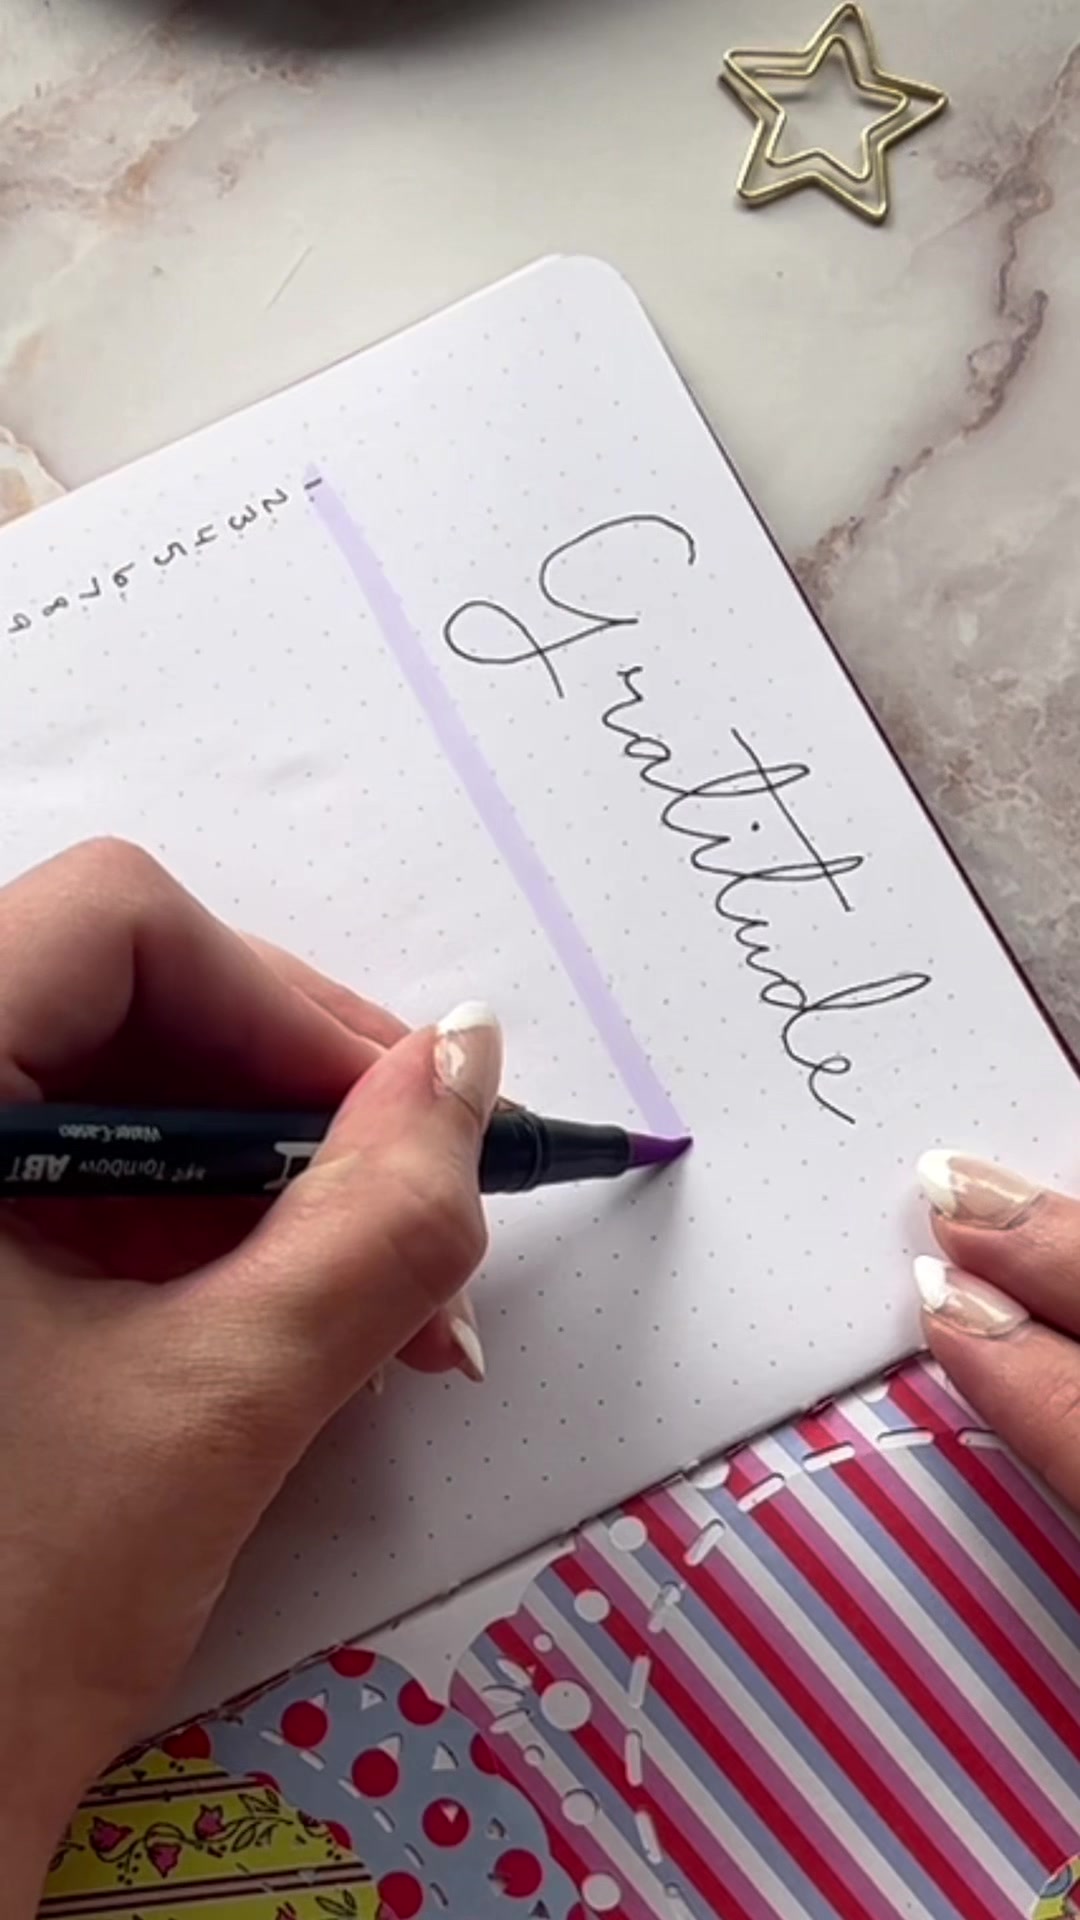 Gratitude
1
2
3
4
5
6
7
8
9
ABT Tombow
Water-Based